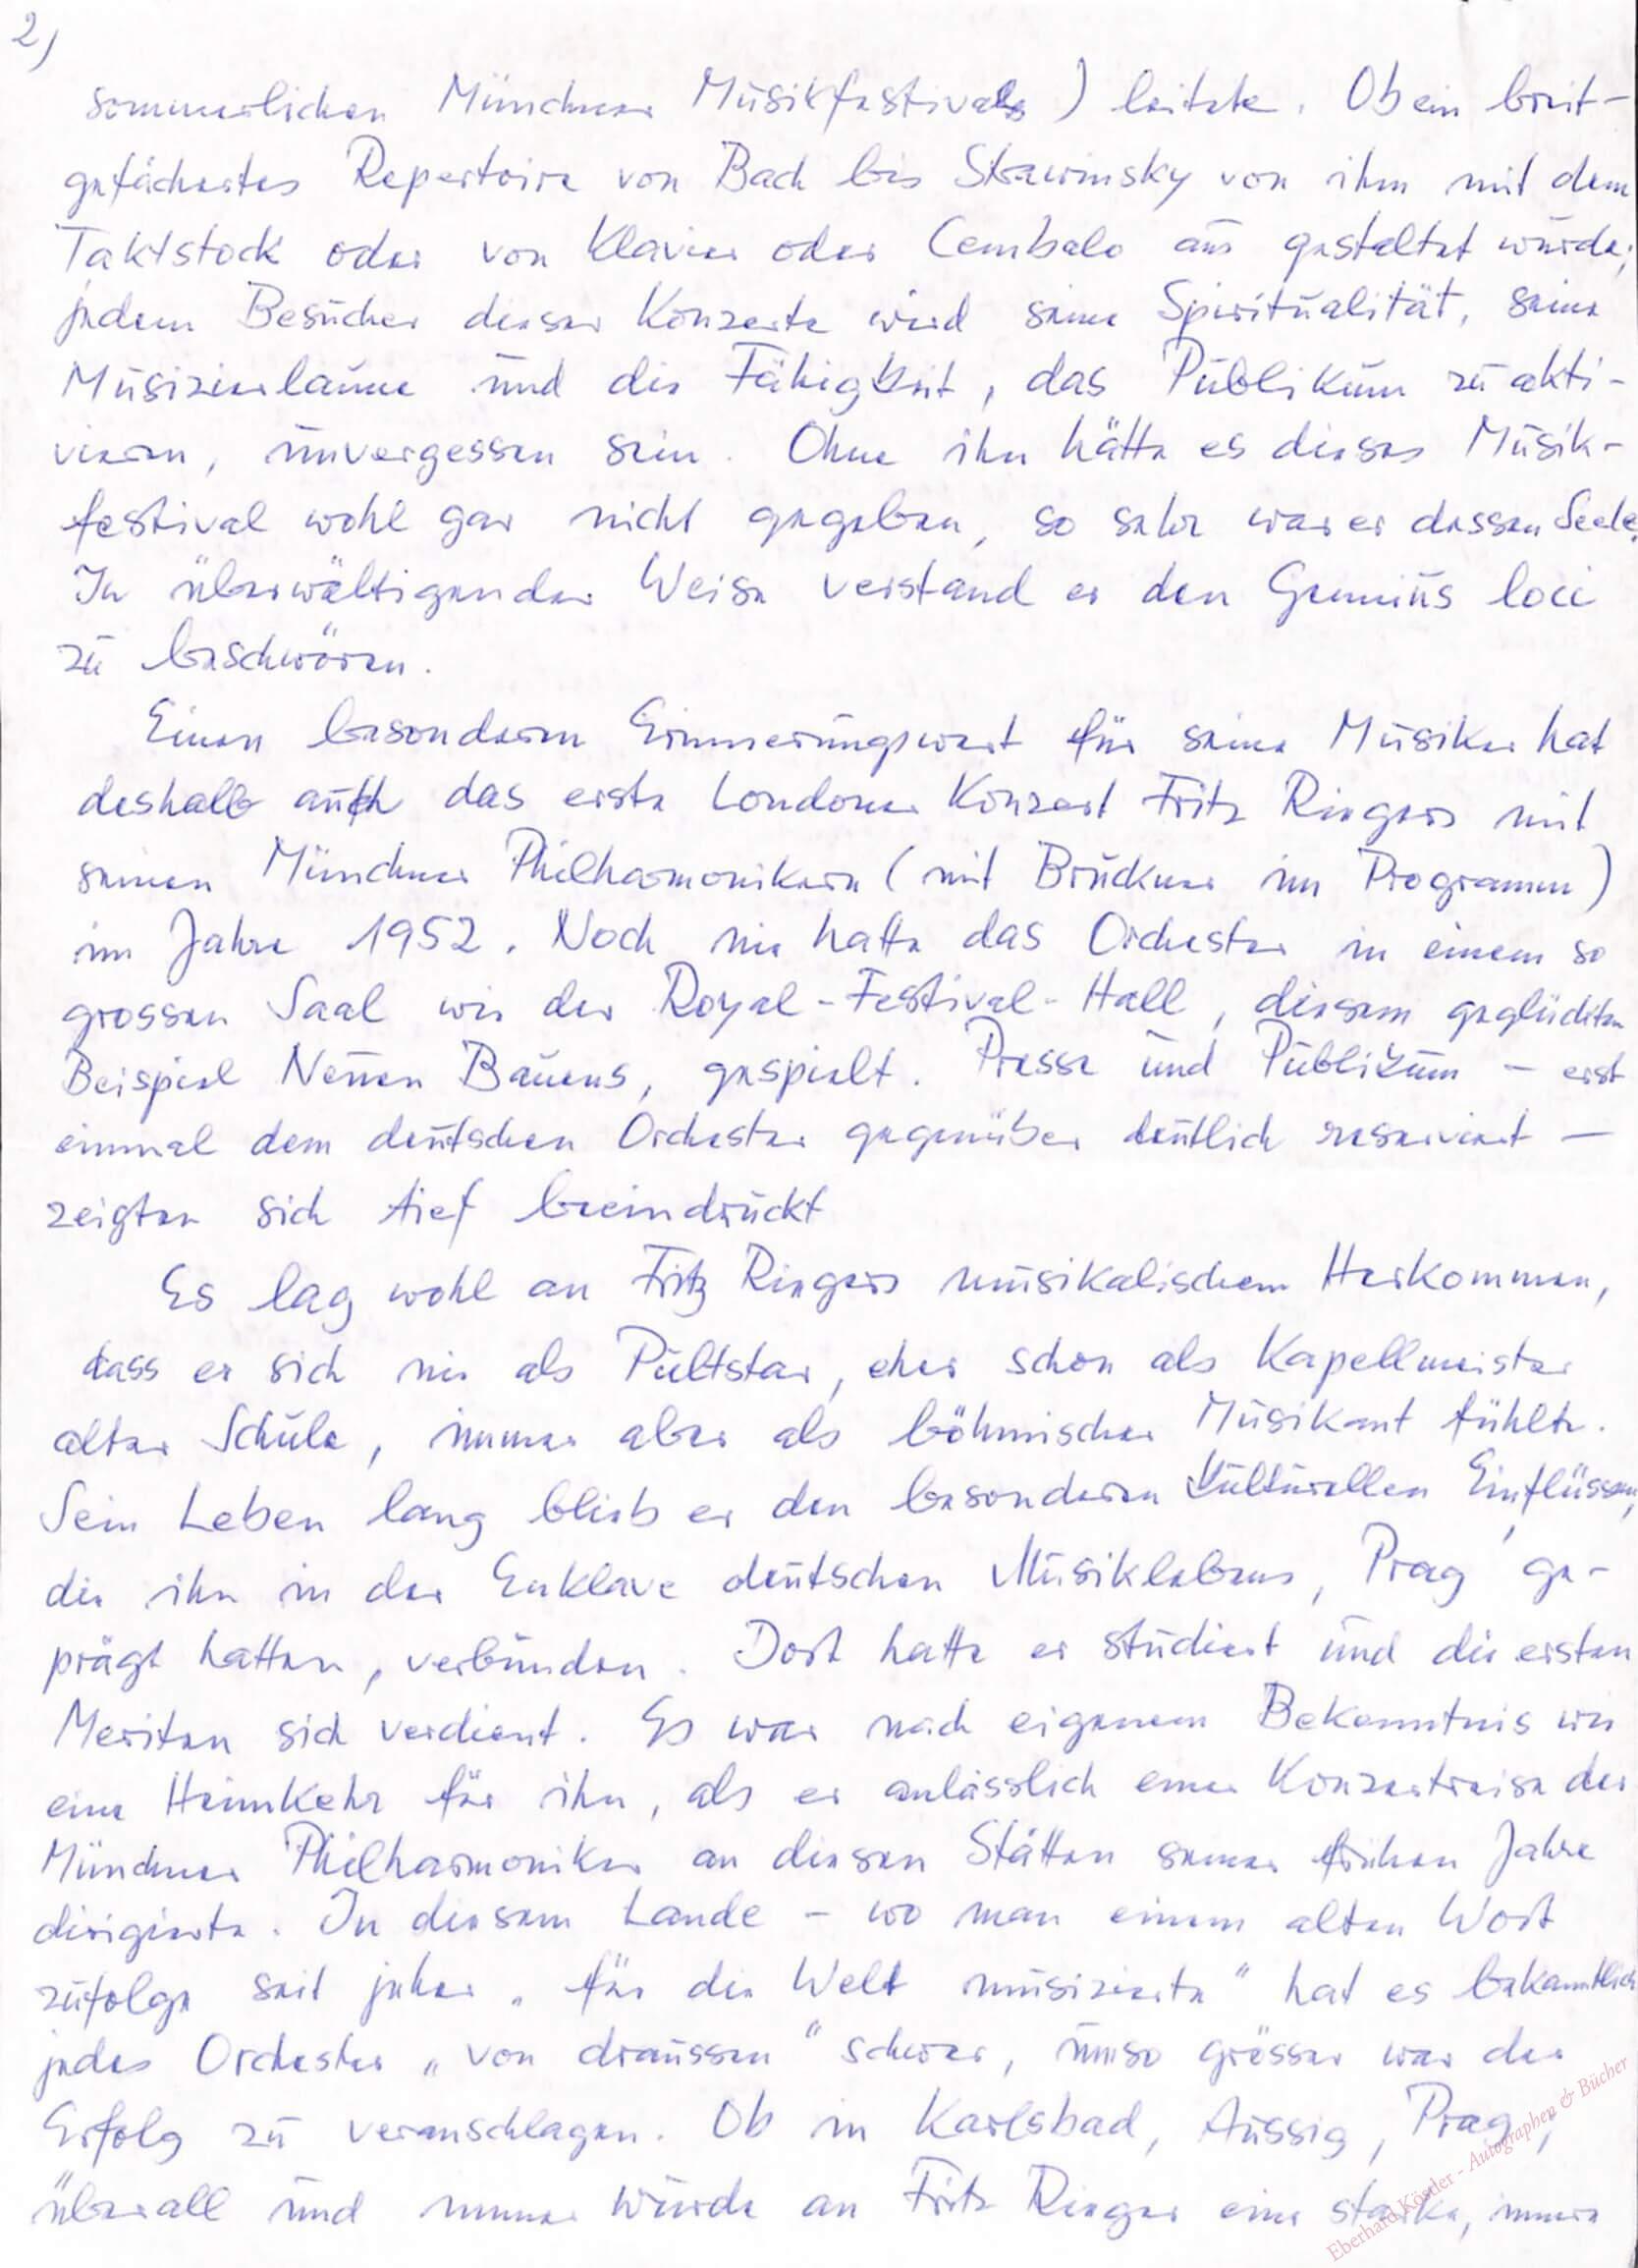 2)
sommerlichen Münchner Musikfestivals) leitete. Ob ein breit-
gefächertes Repertoire von Bach bis Strawinsky von ihm mit dem
Taktstock oder von Klavier oder Cembalo aus gestaltet wurde;
jedem Besucher dieser Konzerte wird seine Spiritualität, seine
Musizierlaune und die Fähigkeit, das Publikum zu akti-
vieren, unvergessen sein. Ohne ihn hätte es dieses Musik-
festival wohl gar nicht gegeben, so sehr war er dessen Seele.
In überwältigender Weise verstand er den Gennius loci
zu beschwören.
Einen besonderen Erinnerungswert für seine Musiker hat
deshalb auch das erste Londoner Konzert Fritz Riegers mit
seinen Münchner Philharmonikern (mit Bruckner im Programm)
im Jahre 1952. Noch nie hatte das Orchester in einem so
grossen Saal wie der Royal-Festival-Hall, diesem geglückten
Beispiel Neuen Bauens, gespielt. Presse und Publikum – erst
einmal dem deutschen Orchester gegenüber deutlich reserviert –
zeigten sich tief beeindruckt
Es lag wohl an Fritz Riegers musikalischem Herkommen,
dass er sich nie als Pultstar, eher schon als Kapellmeister
alter Schule, immer aber als böhmischer Musikant fühlte.
Sein Leben lang blieb er den besonderen kulturellen Einflüssen,
die ihn in der Enklave deutschen Musiklebens, Prag, ge-
prägt hatten, verbunden. Dort hatte er studiert und die ersten
Meriten sich verdient. Es war nach eigenem Bekenntnis wie
eine Heimkehr für ihn, als er anlässlich einer Konzertreise der
Münchner Philharmoniker an diesen Stätten seiner frühen Jahre
dirigierte. In diesem Lande – wo man einem alten Wort
zufolge seit jeher „für die Welt musizierte" hat es bekanntlich
jedes Orchester „von draussen" schwer, umso grösser war der
Erfolg zu veranschlagen. Ob in Karlsbad, Aussig, Prag,
überall und immer wurde an Fritz Rieger eine starke, innere
Eberhard Köstler - Autographen & Bücher